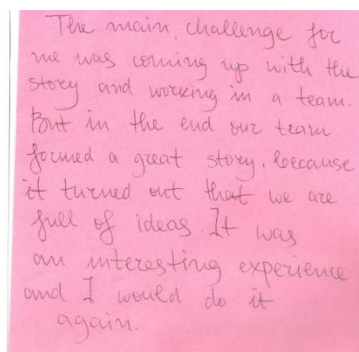 The main challenge for
me was coming up with the
story and working in a team.
But in the end our team
formed a great story, because
it turned out that we are
full of ideas. It was
an interesting experience
and I would do it
again.